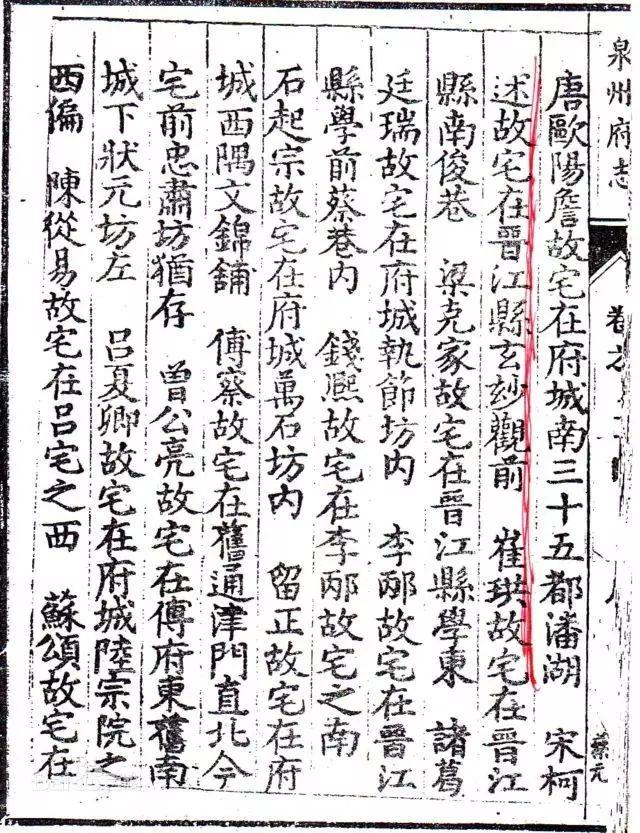 泉州府志
卷之
蔡元
唐歐陽詹故宅在府城南三十五都潘湖 宋柯
述故宅在晉江縣玄妙觀前 崔珙故宅在晉江
縣南俊巷 梁克家故宅在晉江縣學東 諸葛
廷瑞故宅在府城執節坊內 李邴故宅在晉江
縣學前蔡巷內 錢熙故宅在李邴故宅之南
石起宗故宅在府城萬石坊內 留正故宅在府
城西隅文錦舖 傅察故宅在舊通津門直北今
宅前忠肅坊猶存 曾公亮故宅在傅府東舊南
城下狀元坊左 呂夏卿故宅在府城陸宗院之
西偏 陳從易故宅在呂宅之西 蘇頌故宅在